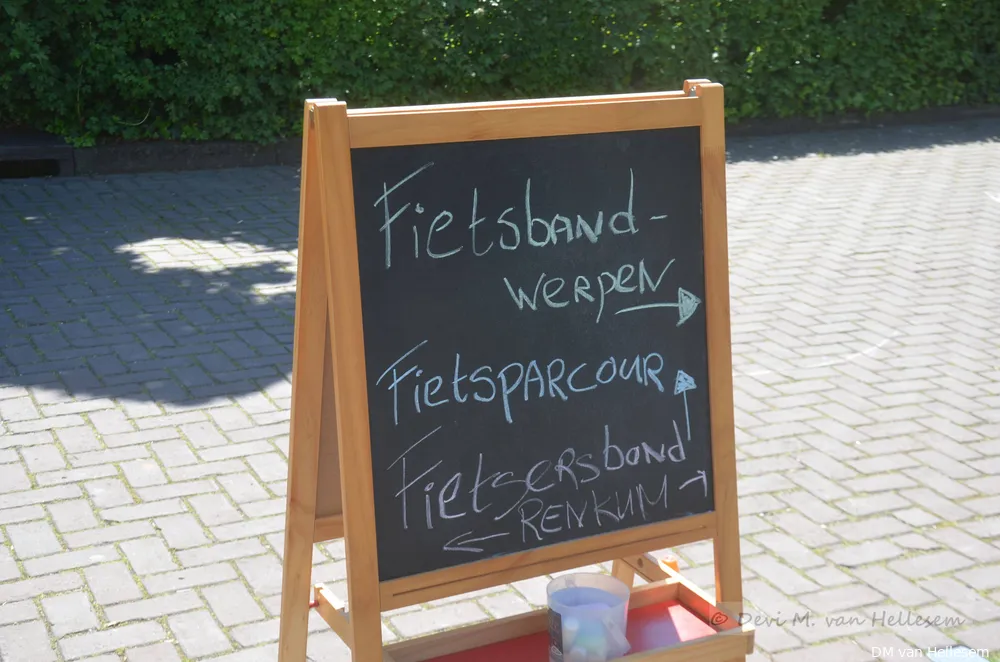 Fietsband-
werpen →
Fietsparcour ↑
Fietsersbond
← Renkum →
© Devi M. van Hellesem
DM van Hellesem